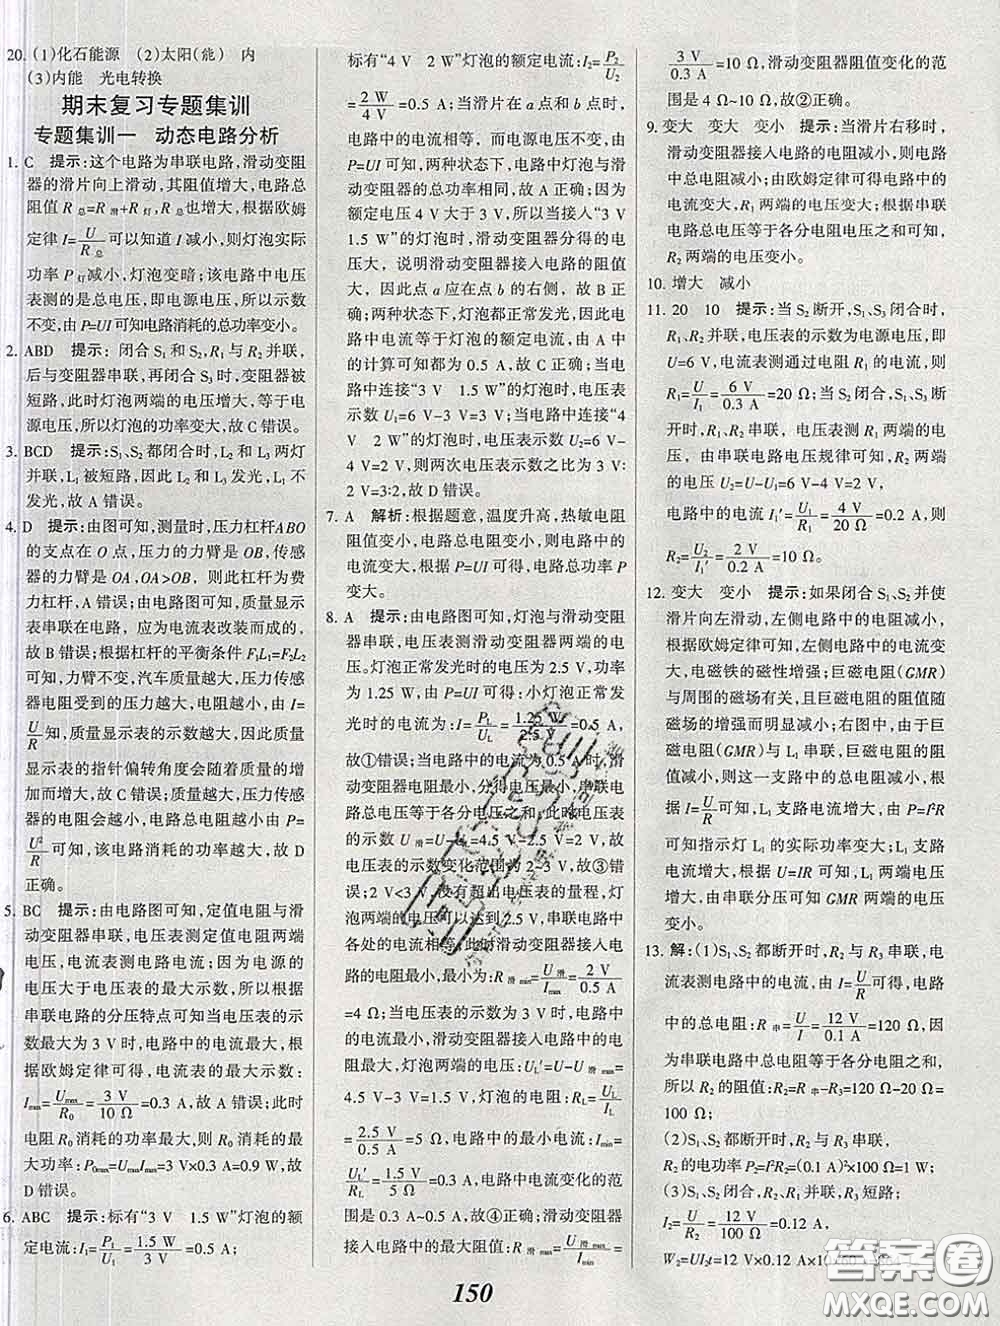 20. (1)化石能源　(2)太阳(能)　内
(3)内能　光电转换
期末复习专题集训
专题集训一　动态电路分析
1. C　提示:这个电路为串联电路,滑动变阻
器的滑片向上滑动,其阻值增大,电路总
阻值 R总=R滑+R灯,R总也增大,根据欧姆
定律 I=U/R总可以知道 I 减小,则灯泡实际
功率 P灯减小,灯泡变暗;该电路中电压
表测的是总电压,即电源电压,所以示数
不变,由 P=UI 可知电路消耗的总功率变小。
2. ABD　提示:闭合 S1 和 S2,R1 与 R2 并联,
后与变阻器串联,再闭合 S3 时,变阻器被
短路,此时灯泡两端的电压增大,等于电
源电压,所以灯泡的功率变大,故 C 错误。
3. BCD　提示:S1、S2 都闭合时,L2 和 L3 两灯
并联,L1 被短路,因此 L2 和 L3 发光,L1 不
发光,故 A 错误。
4. D　提示:由图可知,测量时,压力杠杆ABO
的支点在 O 点,压力的力臂是 OB,传感
器的力臂是 OA,OA>OB,则此杠杆为费
力杠杆,A 错误;由电路图可知,质量显示
表串联在电路,应为电流表改装而成的,
故 B 错误;根据杠杆的平衡条件 F1L1=F2L2
可知,力臂不变,汽车质量越大,压力传感
器电阻受到的压力越大,电阻越小,由 I=
U/R知,质量显示表的示数越大,因此质量
显示表的指针偏转角度会随着质量的增
加而增大,故 C 错误;质量越大,压力传感
器电阻会越小,电路总电阻越小,由 P=
U²/R可知,该电路消耗的功率越大,故 D
正确。
5. BC　提示:由电路图可知,定值电阻与滑
动变阻器串联,电压表测定值电阻两端
电压,电流表测电路电流;因为电源的
电压大于电压表的最大示数,所以根据
串联电路的分压特点可知当电压表示数
为 3 V 时,电路中的电流最大,根
据欧姆定律可得,电流表的最大示数:
Imax=Umax/R0=3 V/10 Ω=0.3 A,故 A 错误;此时
电阻 R0 消耗的功率最大,则 R0 消耗的最
大功率:P0max=UmaxImax=3 V×0.3 A=0.9 W,
故 D 错误。
6. ABC　提示:标有“3 V　1.5 W”灯泡的额
定电流:I1=P1/U1=1.5 W/3 V=0.5 A;
标有“4 V　2 W”灯泡的额定电流:I2=P2/U2
=2 W/4 V=0.5 A;当滑片在 a 点和 b 点时,
电路中的电流相等,而电源电压不变,由
P=UI 可知,两种状态下,电路中灯泡与滑
动变阻器的总功率相同,故 A 正确;因为
额定电压 4 V 大于 3 V,所以当接入“3 V
1.5 W”的灯泡时,滑动变阻器分得的电
压大,说明滑动变阻器接入电路的阻值
大,因此点 a 应在点 b 的右侧,故 B 正确;
两种状态下,灯泡都正常发光,因此电路
中的电流等于灯泡的额定电流,由 A 中
的计算可知都为 0.5 A,故 C 正确;当
电路中连接“3 V　1.5 W”的灯泡时,电压表
示数 U1=6 V-3 V=3 V;当电路中连接“4
V　2 W”的灯泡时,电压表示数 U2=6 V-
4 V=2 V,则两次电压表示数之比为 3 V:
2 V=3:2,故 D 错误。
7. A　解析:根据题意,温度升高,热敏电阻
阻值变小,电路总电阻变小,则电路中的
电流变大,根据 P=UI 可知,电路总功率 P
变大。
8. A　提示:由电路图可知,灯泡与滑动变阻
器串联,电压表测滑动变阻器两端的电
压。灯泡正常发光时的电压为 2.5 V,功率
为 1.25 W,由 P=UI 可得:小灯泡正常发
光时的电流为:I=PL/UL=1.25 W/2.5 V=0.5 A,
故①错误;当电路中的电流为 0.5 A 时,滑
动变阻器中的电阻最小,因串联
电路总电压等于各分电压之和,此时电压表
的示数 U滑=U-UL=4.5 V-2.5 V=2 V,故
电压表的示数变化范围为 2~3 V,故③错
误;2 V<3 V,没有超出电压表的量程,灯
泡两端的电压可以达到 2.5 V,串联电路中
各处的电流相等,此时滑动变阻器接入电路
的电阻最小,最小为:R滑min=U滑/Imax=2 V/0.5 A
=4 Ω;当电压表的示数为 3 V 时,电路中
的电流最小,滑动变阻器接入电路中的电
阻最大,灯泡两端的电压:UL′=U-U滑=
4.5 V-3 V=1.5 V,灯泡的电阻:RL=UL/IL
=2.5 V/0.5 A=5 Ω,电路中的最小电流:Imin=
UL′/RL=1.5 V/5 Ω=0.3 A,则电路中电流变化的范
围是 0.3 A~0.5 A,故④正确;滑动变阻器
接入电路中的最大阻值:R滑max=U滑max/Imin=
3 V/0.3 A=10 Ω,滑动变阻器阻值变化的范
围是 4 Ω~10 Ω,故②正确。
9. 变大　变大　变小　提示:当滑片右移时,
滑动变阻器接入电路的电阻减小,则电
路中的总电阻减小;由欧姆定律可得电路中的
电流变大,R1 两端的电压变大;根据串联
电路总电压等于各分电阻电压之和可知,
R2 两端的电压变小。
10. 增大　减小
11. 20　10　提示:当 S2 断开,S1、S3 闭合时,
R1、R3 并联,电压表的示数为电源电压,即
U=6 V,电流表测通过电阻 R1 的电流,则
R1=U/I1=6 V/0.3 A=20 Ω;当 S2 闭合,S1、S3 断
开时,R1、R2 串联,电压表测 R1 两端的电
压,由串联电路电压规律可知,R2 两端的
电压U2=U-U1=6 V-4 V=2 V,
电路中的电流 I1′=U1/R1=4 V/20 Ω=0.2 A,则
R2=U2/I1′=2 V/0.2 A=10 Ω。
12. 变大　变小　提示:如果闭合 S1、S2 并使
滑片向左滑动,左侧电路中的电阻减小,
根据欧姆定律可知,左侧电路中的电流变
大,电磁铁的磁性增强;巨磁电阻(GMR)
与周围的磁场有关,且巨磁电阻的阻值随
磁场的增强而明显减小;右图中,由于巨
磁电阻(GMR)与 L1 串联,巨磁电阻的阻
值减小,则这一支路中的总电阻减小,根
据 I=U/R可知,L1 支路电流增大,由 P=I²R
可知指示灯 L1 的实际功率变大;L1支路
电流增大,由 U=IR 可知,L1 两端的电压
增大,由串联分压可知 GMR 两端的电压
变小。
13. 解:(1)S1、S2 都断开时,R2 与 R3 串联,电
流表测电路中的电流,由 I=U/R可得,电路
中的总电阻:R串=U/I=12 V/0.1 A=120 Ω,因
为串联电路中总电阻等于各分电阻之和,
所以 R2 的阻值:R2=R串-R3=120 Ω-20 Ω=
100 Ω;
(2)S1、S2 都断开时,R2 与 R3 串联,
R2 的电功率 P2=I²R2=(0.1 A)²×100 Ω=1 W;
(3)S1、S2 闭合,R1、R2 并联,R3 短路;
I2=U/R2=12 V/100 Ω=0.12 A,
W2=UI2t=12 V×0.12 A×
150
答案圈
MXQE.COM